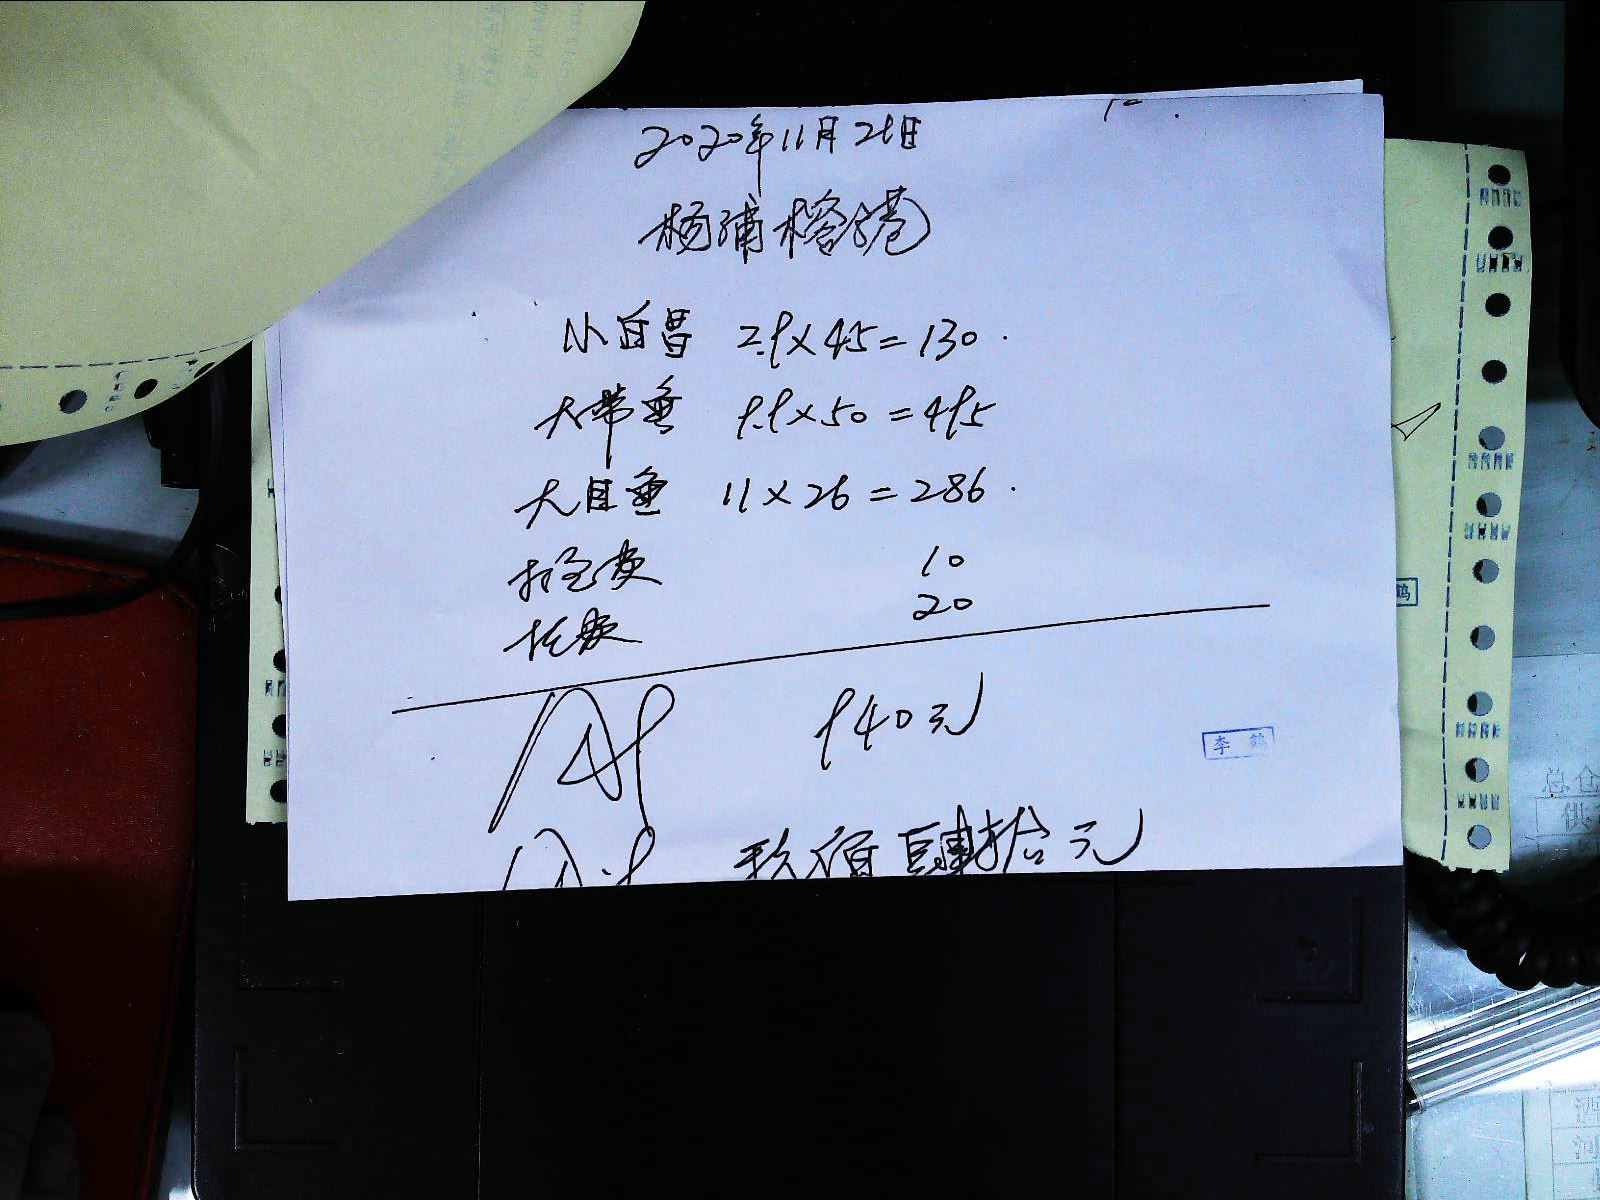 2020年11月28日
杨浦榕港
小白昌 2.9×45=130.
大带鱼 9.9×50=495
大目鱼 11×26=286.
打包费 10
托费 20
940元
李鹤
玖佰肆拾元
鹤
总仓
供
酒
河